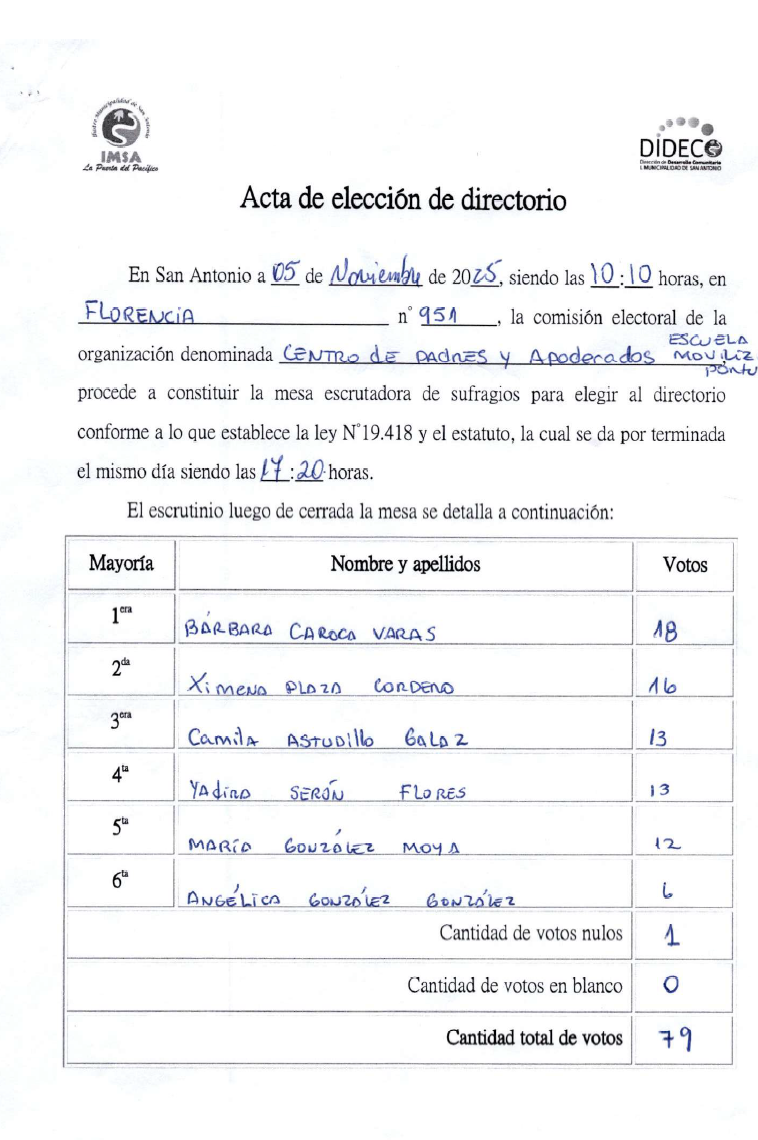 Ilustre Municipalidad de San Antonio
IMSA
La Puerta del Pacífico
DIDECO
Dirección de Desarrollo Comunitario
I. MUNICIPALIDAD DE SAN ANTONIO
Acta de elección de directorio
En San Antonio a 05 de Noviembre de 2025, siendo las 10:10 horas, en
FLORENCIA n° 951, la comisión electoral de la
organización denominada CENTRO de PADRES Y Apoderados ESCUELA MOVILIZ PORTU
procede a constituir la mesa escrutadora de sufragios para elegir al directorio
conforme a lo que establece la ley N°19.418 y el estatuto, la cual se da por terminada
el mismo día siendo las 17:20 horas.
El escrutinio luego de cerrada la mesa se detalla a continuación:
Mayoría Nombre y apellidos Votos
1era BÁRBARA CAROCA VARAS 18
2da XiMENA PLAZA CORDERO 16
3era Camila ASTUDillo GALAZ 13
4ta YAdiRA SERÓN FLORES 13
5ta MARÍA GONZÁLEZ MOYA 12
6ta ANGÉLICA GONZÁLEZ GONZÁLEZ 6
Cantidad de votos nulos 1
Cantidad de votos en blanco 0
Cantidad total de votos 79